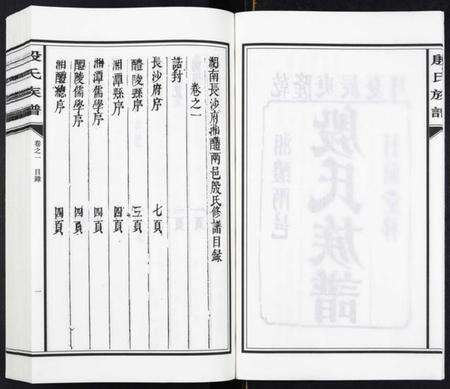 殷氏族譜
湖南長沙府湘醴兩邑殷氏修譜目錄
卷之一
誥封
長沙府序 七頁
醴陵縣序 三頁
湘潭縣序 四頁
湘潭儒學序 四頁
醴陵儒學序 四頁
湘醴總序 四頁
殷氏族譜
卷之一 目錄
一
殷氏族譜
湘醴兩邑